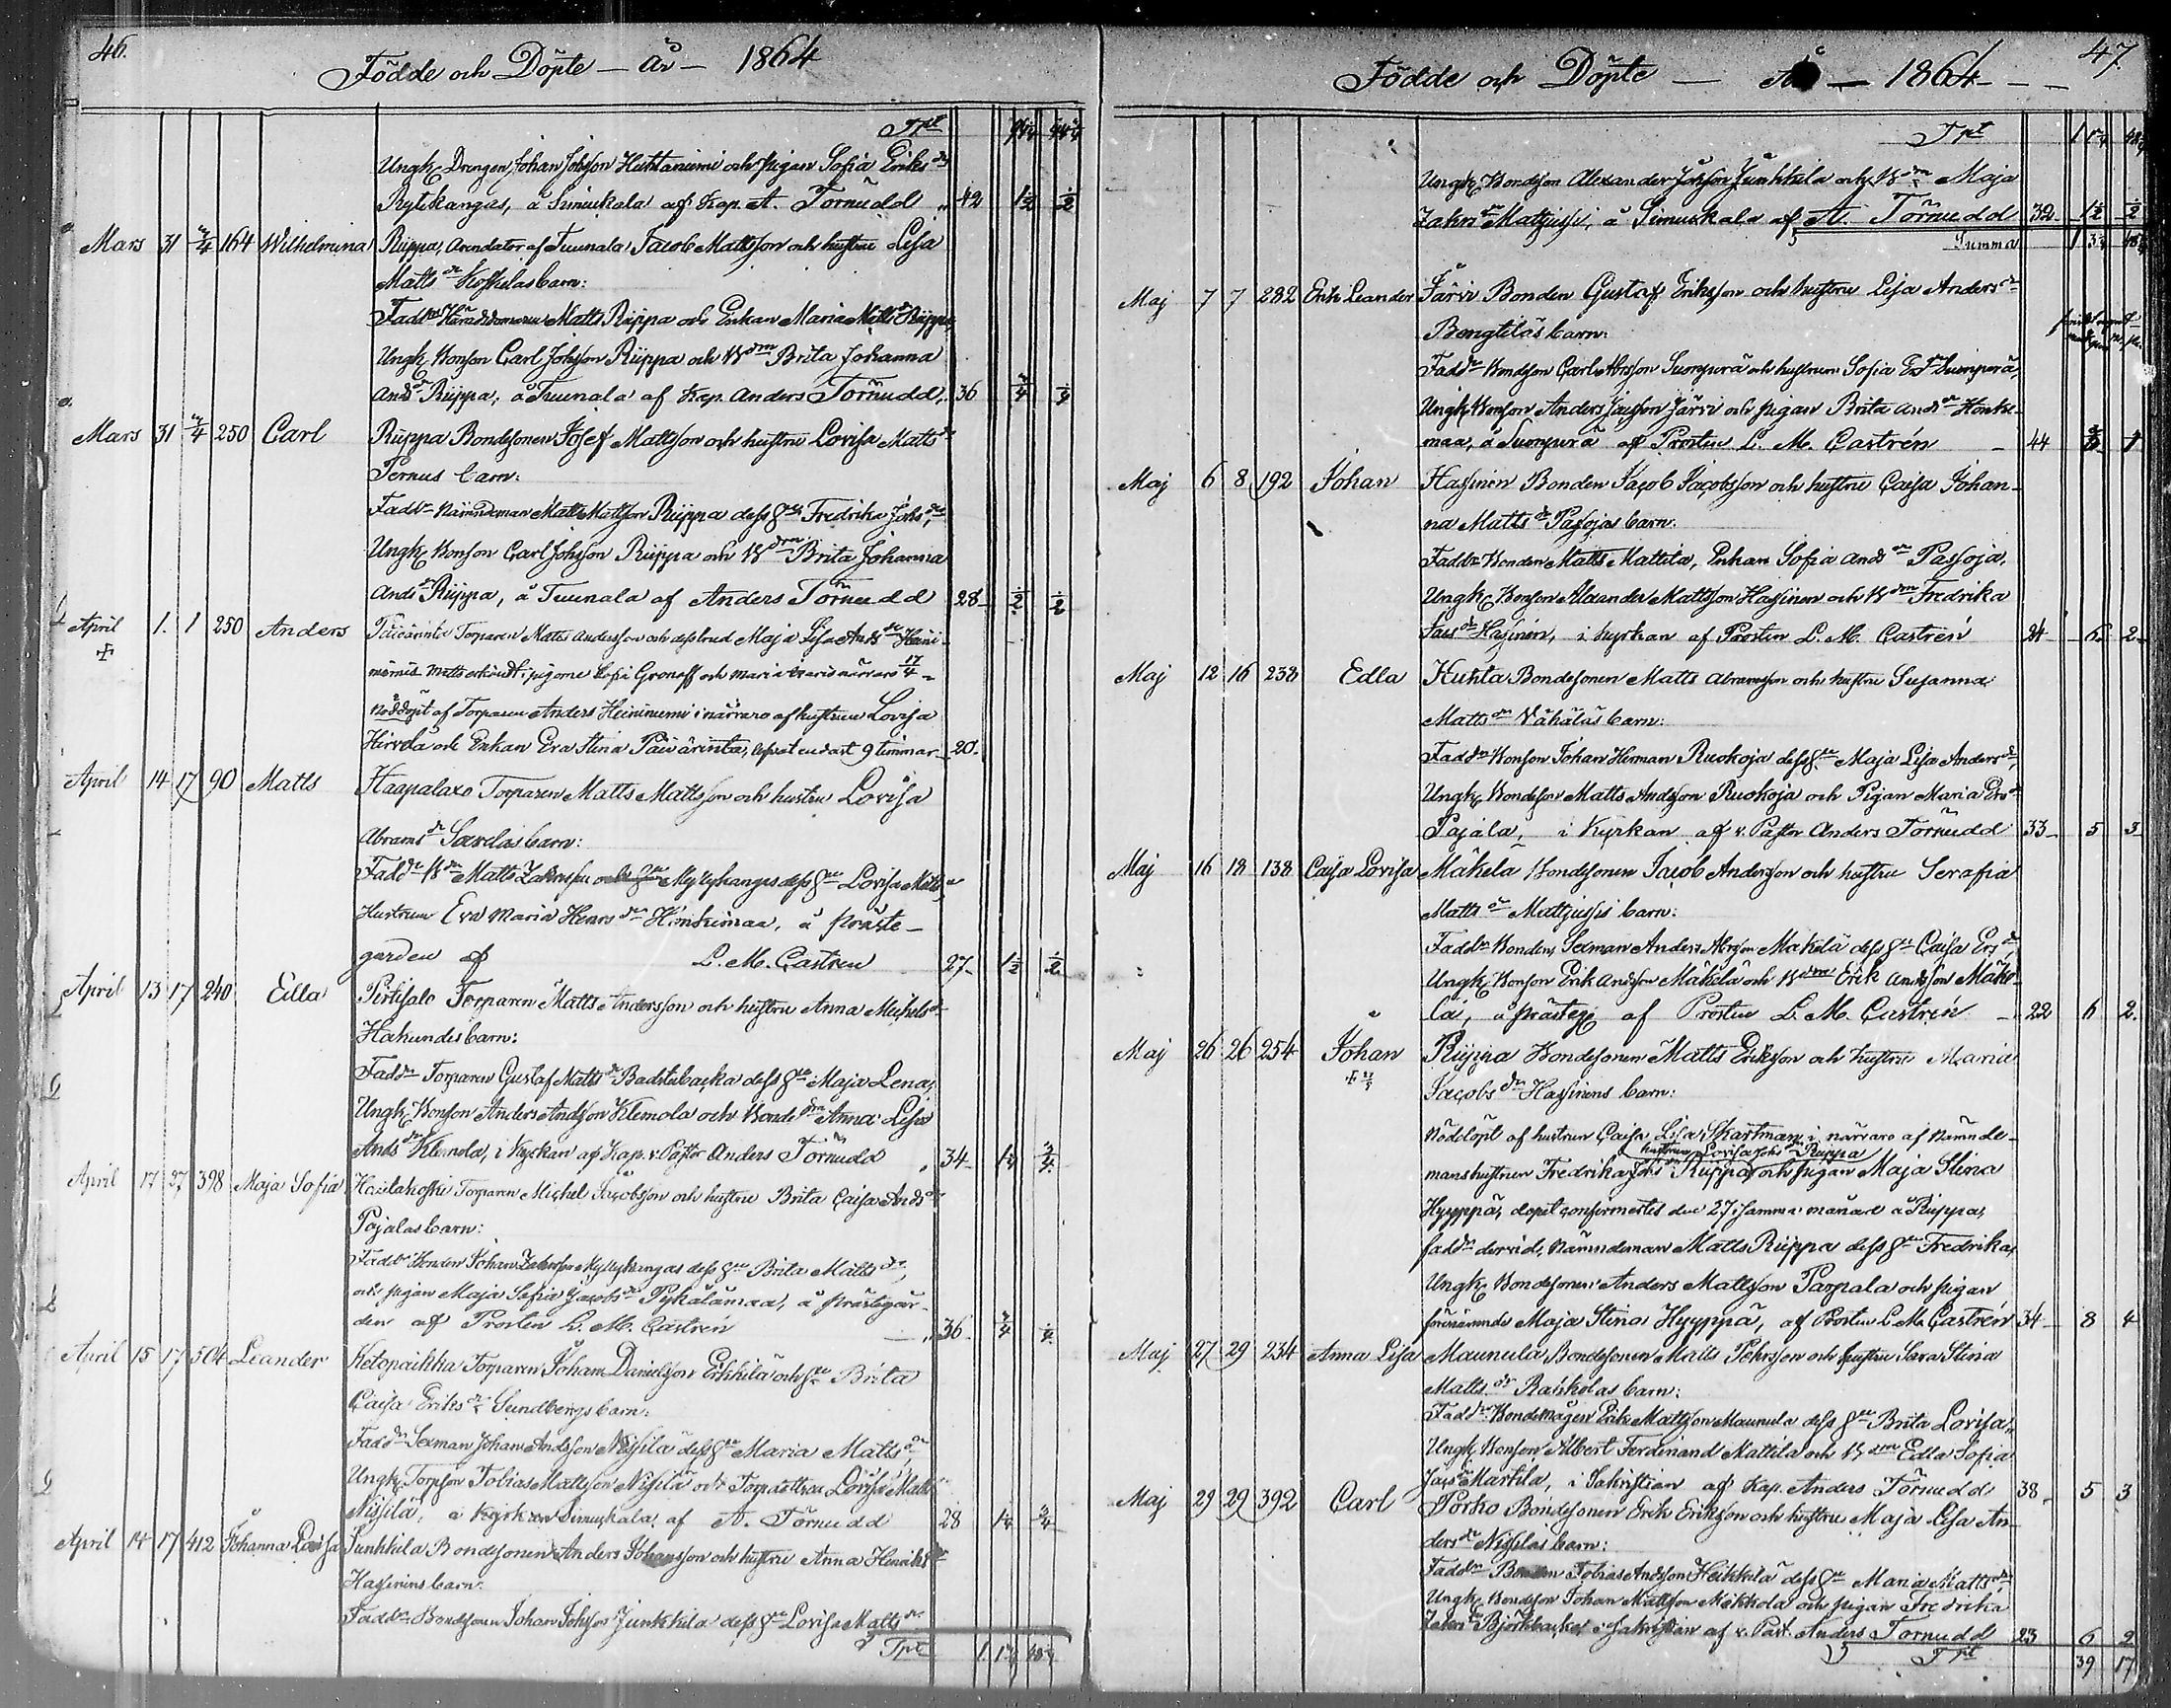 46.
Födde och Döpte — År — 1864
Tpt
Ungk. Drengen Johan Johsson Huhtaniemi och pigan Sofia Eriks dr
Rytikangas, å Simuskala af Kap. A. Törnudd 42 1½ ½
Mars 31 ¾ 164 Wilhelmina Riippa, Arendator af Tuunala Jacob Mattsson och hustru Lisa
Matts dr Koskelas barn:
Faddr Häradsdomaren Matts Riippa och Enkan Maria Matts dr Riippa,
Ungk. Bonson Carl Johsson Riippa och B dm Brita Johanna
Ands dr Riippa, å Tuunala af Kap. Anders Törnudd, 36 ¾ ¼
Mars 31 250 Carl Riippa Bondsonen Josef Mattsson och hustru Lovisa Matts dr
Pernus barn:
Faddr Nämndeman Matts Mattsson Riippa dess hu Fredrika Johs dr,
Ungk. Bonson Carl Johsson Riippa och B dm Brita Johanna
Ands dr Riippa, å Tuunala af Anders Törnudd 28 ½ ½
April 1. 1 250 Anders Päivärinta Torparen Matts Andersson och dess brud Maja Lisa Ands dr Heini-
niemis
nöddöpt af Torparen Anders Heininiemi i närvaro af hustrun Lovisa
Hirvelä och Enkan Eva Stina Päivärinta, lefvat endast 9 timmar 20.
April 14 17 90 Matts Haapalaxo Torparen Matts Mattsson och hustru Lovisa
Abrams dr Savelas barn:
Faddr B Matts Zakrisson Myllykangas dess hu Lovisa Matts dr,
Hustrun Eva Maria Henrs dr Honkimaa, å präste-
garden af L. M. Castren 27 1½ ½
April 13 17 240 Edla Pirtisalo Torparen Matts Andersson och hustru Anna Michels dr
Hakundes barn:
Faddr Torparen Gustaf Matts Badstubacka dess hu Maja Lena,
Ungk. Bonson Anders Andsson Klemola och Bonde dm Anna Lisa
Ands dr Klemola, i Kyrkan af Kap. v. Pastor Anders Törnudd 34 1¼ ¾
April 17 27 398 Maja Sofia Hautakoski Torparen Michel Jacobsson och hustru Brita Caisa Ands dr
Pajalas barn:
Faddr Bonden Johan Zakrisson Myllykangas dess hu Brita Matts dr,
och pigan Maja Sofia Jacobs dr Pykälämaa, å prästegår-
den af Prosten L. M. Castrén 36 ¾ ¼
April 15 17 504 Leander Ketopaikka Torparen Johan Danielsson Erkkilä och hu Brita
Caisa Eriks dr Sundbergs barn:
Faddr Sexman Johan Andsson Nisula dess hu Maria Matts dr,
Ungk. Torpson Tobias Mattsson Nisula och Torparettren Lovisa Matts dr
Nisula, i Kyrkan Simuskala af A. Törnudd 28 1¼ ¾
April 14 17 412 Johanna Lovisa Junkkila Bondsonen Anders Johansson och hustru Anna Henriks dr
Hassinens barn:
Faddr Bondsonen Johan Johsson Junkkila dess hu Lovisa Matts dr
Tpt
47.
Födde och Döpte — År — 1864 - - -
Tpt
Ungk. Bondson Alexander Johsson Junkkila och B dm Maja
Zakrs dr Mattjussi, å Simuskala af A. Törnudd 32 1½ ½
Summa
Maj 7 7 282 Erik Leander Järvi Bonden Gustaf Eriksson och hustru Lisa Anders dr
Bengtiläs barn:
Faddr Bondson Carl Abrsson Suonperä och hustrun Sofia Suonperä,
Ungk. Bonson Anders Jacsson Järvi och pigan Brita Ands dr Honki-
maa, å Suonperä af Prosten L. M. Castrén 44
Maj 6 8 192 Johan Hassinen Bonden Jacob Jacobsson och hustru Caisa Johan-
na Matts dr Passojas barn:
Faddr Bonden Matts Mattila, Enkan Sofia Ands dr Passoja,
Ungk. Bonson Alexander Mattsson Hassinen och B dm Fredrika
Jacs dr Hassinen, i Kyrkan af Prosten L. M. Castrén 24 6 2
Maj 12 16 238 Edla Kuhta Bondsonen Matts Abramsson och hustru Susanna
Matts dr Vähäläs barn:
Faddr Bonson Johan Herman Ruokoja dess hu Maja Lisa Anders dr,
Ungk. Bondson Matts Andsson Ruokoja och Pigan Maria Ers dr
Pajala, i Kyrkan af v. Pastor Anders Törnudd 33 5 3
Maj 16 18 138 Caisa Lovisa Mäkelä Bondsonen Jacob Andersson och hustru Serafia
Matts dr Mattjussis barn:
Faddr Bonden, Sexman Anders Abrsson Mäkelä dess hu Caisa Ers dr,
Ungk. Bonson Erik Andsson Mäkelä och B dm Erik Andsson Mäke-
lä, å prästeg. af Prosten L. M. Castrén 22 6 2.
Maj 26 26 254 Johan Riippa Bondsonen Matts Eriksson och hustru Maria
Jacobs dr Hassinens barn:
Nöddöpt af hustrun Caisa Lisa Skartman i närvaro af Nämnde-
hustrun Lovisa Johs dr Riippa
manshustrun Fredrika Johs dr Riippa och pigan Maja Stina
Hyyppä, dopet confirmertes den 27 i samma månad å Riippa,
faddr dervid, Nämndeman Matts Riippa dess hu Fredrika,
Ungk. Bondsonen Anders Mattsson Parpala och pigan
förenämnde Maja Stina Hyyppä, af Prosten L. M. Castrén 34 8 4
Maj 27 29 234 Anna Lisa Maunula Bondsonen Matts Pehrsson och hustru Sara Stina
Matts dr Rahkolas barn:
Faddr Bondemågen Erik Mattsson Maunula dess hu Brita Lovisa,
Ungk. Bonson Albert Ferdinand Mattila och B dm Edla Sofia
Jacs dr Marttila, i Sakristian af Kap. Anders Törnudd 38 5 3
Maj 29 29 392 Carl Porko Bondsonen Erik Eriksson och hustru Maja Lisa An-
ders dr Nissilas barn:
Faddr Bonden Tobias Andsson Heikkilä dess hu Maria Matts dr,
Ungk. Bondson Johan Mattsson Mökkölä och pigan Fredrika
Zakrs dr Björkbacka i Sakristian af v. Past. Anders Törnudd 23 6 2
Tpt 39 17